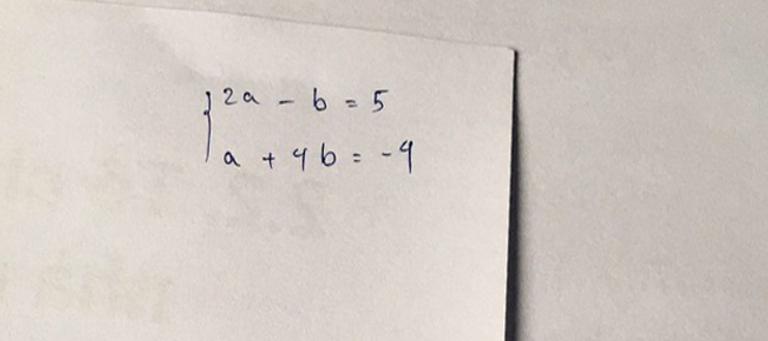 2a - b = 5
a + 4b = -4